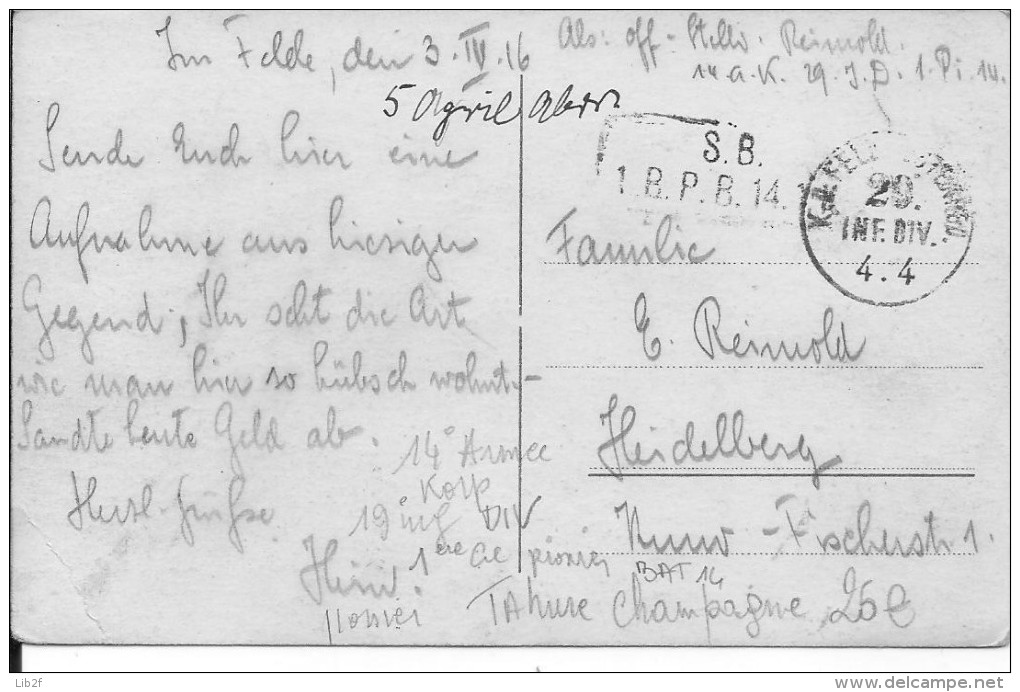 Im Felde, den 3. IV. 16
5 April
Abs: Off-Stellv. Reimold.
14. A. K. 29. I. D. 1. Pi. 14.
Sende Euch hier eine
Aufnahme aus hiesiger
Gegend, Ihr seht die Art
wie man hier so hübsch wohnt.-
Sandte heute Geld ab.
Herzl. Grüsse
S. B.
1. B. P. B. 14.
29.
INF. DIV.
4. 4
Familie
E. Reimold
Heidelberg
Kuno-Fischerstr 1.
14e Armee
Korp
19 inf DIV
1ere Cie pionier
BAT 14
TAhure Champagne 25€
Lib2f
www.delcampe.net